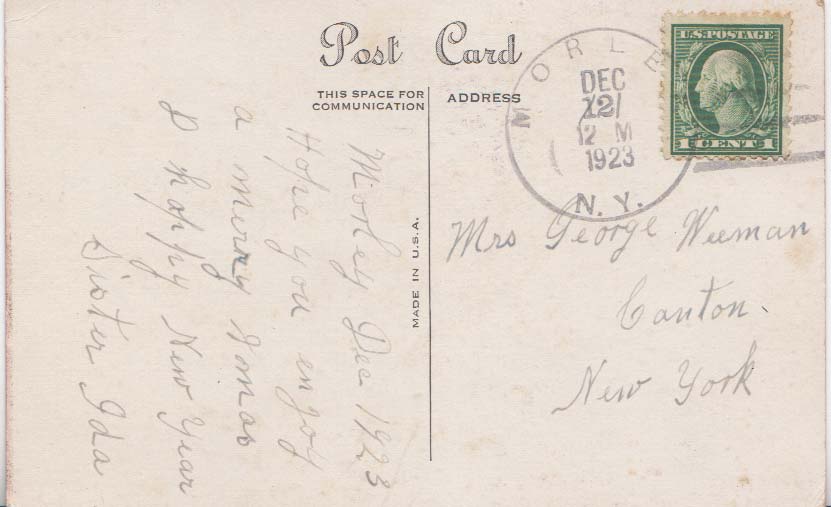 Post Card
THIS SPACE FOR
COMMUNICATION
ADDRESS
MORLE
DEC
12
12 M
1923
N. Y.
U.S. POSTAGE
1 CENT 1
MADE IN U.S.A.
Morley Dec 1923
Hope you enjoy
a merry Xmas
& happy New Year
Sister Ida
Mrs George Weeman
Canton.
New York